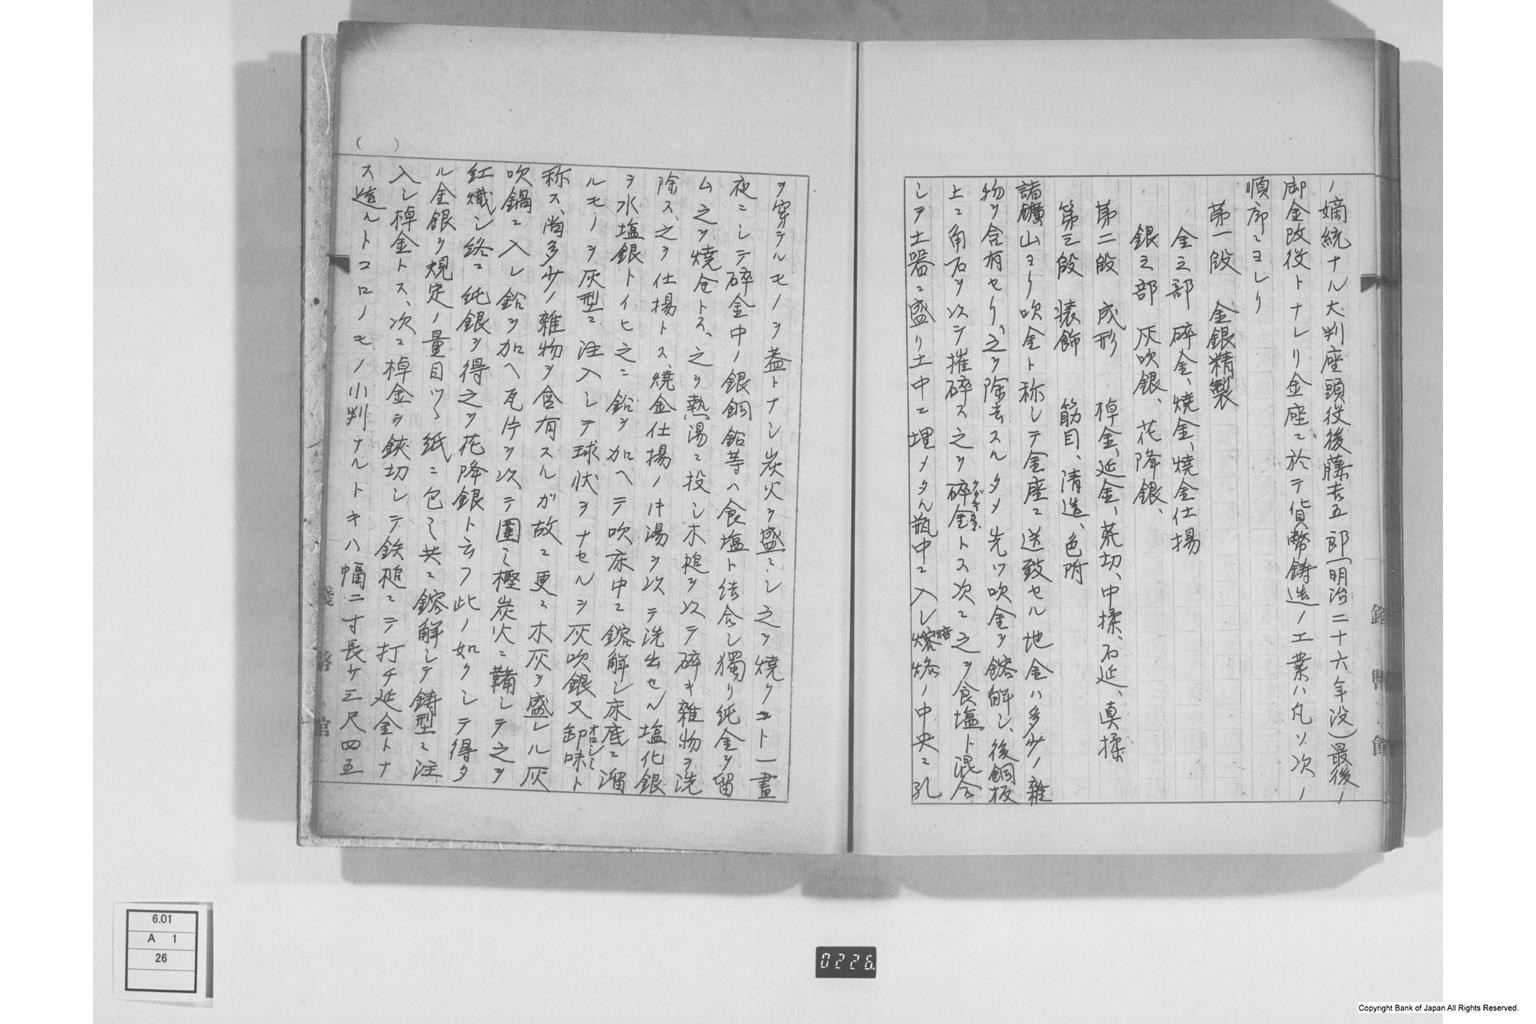 ノ嫡統ナル大判座頭役後藤吉五郎(明治二十六年没)最後ノ
御金改役トナレリ金座ニ於テ貨幣鋳造ノ工業ハ凡ソ次ノ
順序ニヨレリ
第一段 金銀精製
金之部 碎金、焼金、焼金仕揚
銀之部 灰吹銀、花降銀、
第二段 成形 棹金、延金、荒切、中揉、石延、真揉
第三段 装飾 筋目、清造、色附
諸礦山ヨリ吹金ト称シテ金座ニ送致セル地金ハ多少ノ雑
物ヲ含有セリ、之ヲ除去スルタメ先ツ吹金ヲ鎔解シ、後銅板
上ニ角石ヲ以テ摧碎ス之ヲ碎金トス次ニ之ヲ食塩ト混合
シテ土器ニ盛リ土中ニ埋メタル瓶中ニ入レ ノ中央ニ孔
ヲ穿テルモノヲ蓋トナシ炭火ヲ盛ニシ之ヲ焼クコト一晝
夜ニシテ碎金中ノ銀銅鉛等ハ食塩ト結合シ獨リ純金ヲ留
ム之ヲ焼金トス、之ヲ熱湯ニ投シ木槌ヲ以テ碎キ雑物ヲ洗
除ス、之ヲ仕揚トス焼金仕揚ノ時湯ヲ以テ洗出セル塩化銀
ヲ水塩銀トイヒ之ニ鉛ヲ加ヘテ吹床中ニ鎔解シ床底ニ溜
ルモノヲ灰型ニ注入シテ球状ヲナセルヲ灰吹銀又卸味ト
称ス、尚多少ノ雑物ヲ含有スルガ故ニ更ニ木灰ヲ盛レル灰
吹鍋ニ入レ鉛ヲ加ヘ瓦片ヲ以テ圍ミ樫炭火ニ鞴シテ之ヲ
紅熾シ終ニ純銀ヲ得之ヲ花降銀ト云フ此ノ如クシテ得タ
ル金銀ヲ規定ノ量目ツヽ紙ニ包ミ共ニ鎔解シテ鋳型ニ注
入シ棹金トス、次ニ棹金ヲ鋏切シテ鉄槌ニテ打チ延金トナ
ス造ルトコロノモノ小判ナルトキハ幅二寸長サ三尺四五
( )
銭幣館
6.01
A 1
26
0226
Copyright Bank of Japan All Rights Reserved.